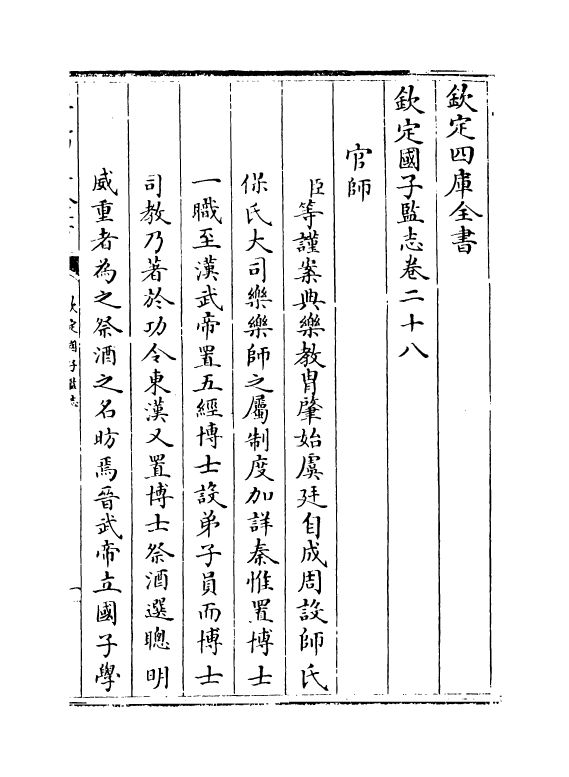 欽定四庫全書
欽定國子監志卷二十八
官師
臣等謹案典樂教胄肇始虞廷自成周設師氏
保氏大司樂樂師之屬制度加詳秦惟置博士
一職至漢武帝置五經博士設弟子員而博士
司教乃著於功令東漢又置博士祭酒選聰明
威重者為之祭酒之名昉焉晉武帝立國子學
欽定國子監志
一